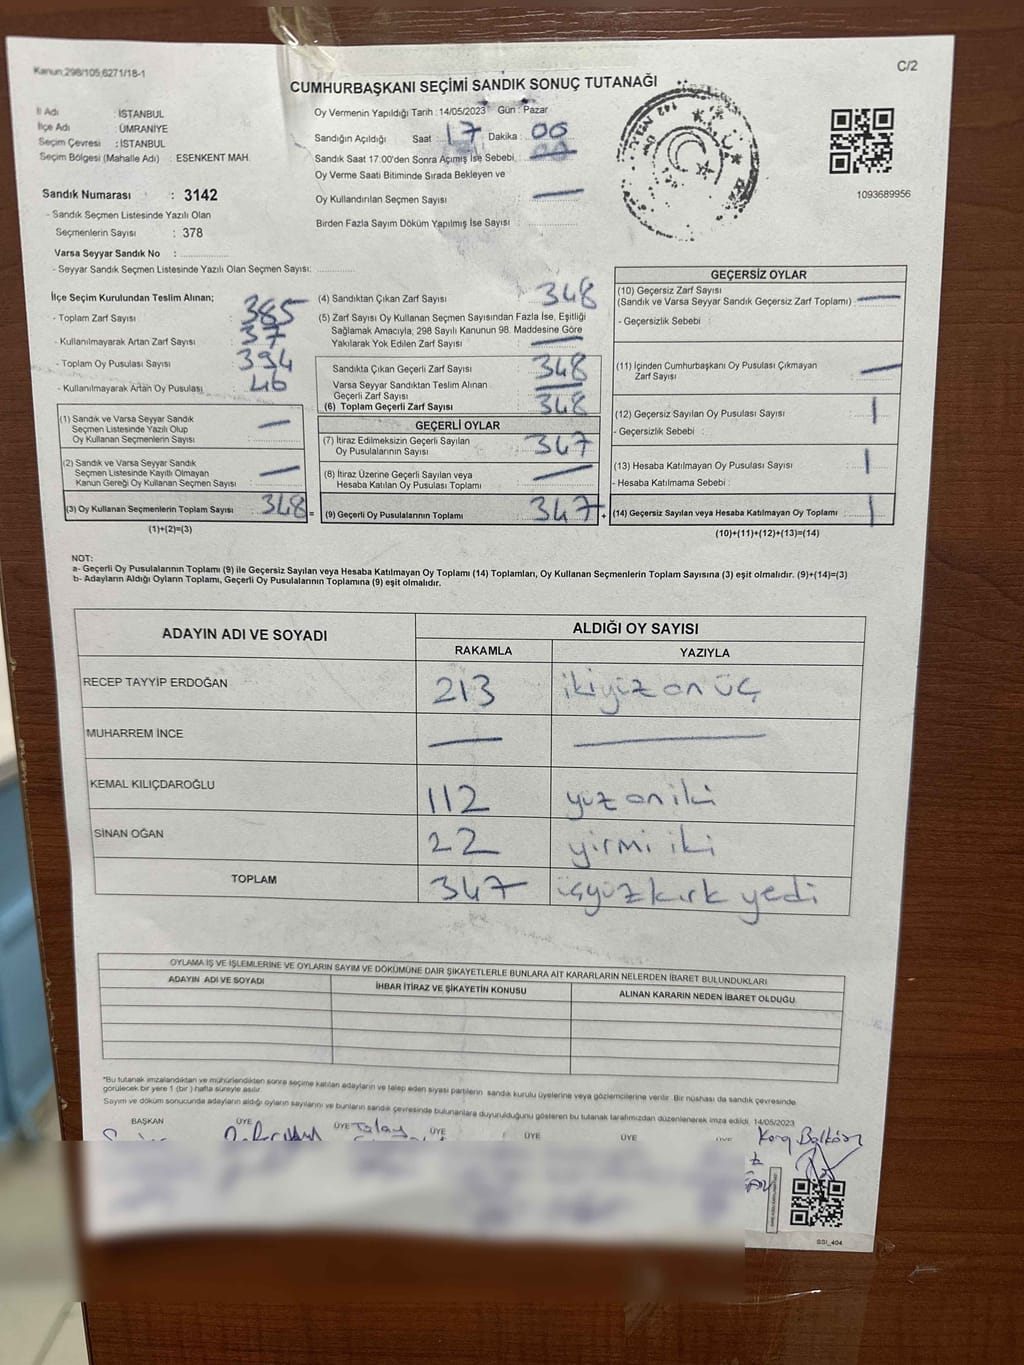 Kanun:298/105,6271/18-1
C/2
CUMHURBAŞKANI SEÇİMİ SANDIK SONUÇ TUTANAĞI
İl Adı : İSTANBUL
İlçe Adı : ÜMRANİYE
Seçim Çevresi : İSTANBUL
Seçim Bölgesi (Mahalle Adı) : ESENKENT MAH.
Sandık Numarası : 3142
- Sandık Seçmen Listesinde Yazılı Olan
Seçmenlerin Sayısı : 378
Varsa Seyyar Sandık No :
- Seyyar Sandık Seçmen Listesinde Yazılı Olan Seçmen Sayısı:
Oy Vermenin Yapıldığı Tarih : 14/05/2023 Gün : Pazar
Sandığın Açıldığı Saat 17 Dakika : 00
Sandık Saat 17.00'den Sonra Açımış İse Sebebi :
Oy Verme Saati Bitiminde Sırada Bekleyen ve
Oy Kullandırılan Seçmen Sayısı : —
Birden Fazla Sayım Döküm Yapılmış İse Sayısı :
1093689956
İlçe Seçim Kurulundan Teslim Alınan;
- Toplam Zarf Sayısı : 385
- Kullanılmayarak Artan Zarf Sayısı : 37
- Toplam Oy Pusulası Sayısı : 394
- Kullanılmayarak Artan Oy Pusulası : 46
(1) Sandık ve Varsa Seyyar Sandık
Seçmen Listesinde Yazılı Olup
Oy Kullanan Seçmenlerin Sayısı : —
(2) Sandık ve Varsa Seyyar Sandık
Seçmen Listesinde Kayıtlı Olmayan
Kanun Gereği Oy Kullanan Seçmen Sayısı : —
(3) Oy Kullanan Seçmenlerin Toplam Sayısı : 348 =
(1)+(2)=(3)
(4) Sandıktan Çıkan Zarf Sayısı : 348
(5) Zarf Sayısı Oy Kullanan Seçmen Sayısından Fazla İse, Eşitliği
Sağlamak Amacıyla, 298 Sayılı Kanunun 98. Maddesine Göre
Yakılarak Yok Edilen Zarf Sayısı : —
Sandıkta Çıkan Geçerli Zarf Sayısı : 348
Varsa Seyyar Sandıktan Teslim Alınan
Geçerli Zarf Sayısı : —
(6) Toplam Geçerli Zarf Sayısı : 348
GEÇERLİ OYLAR
(7) İtiraz Edilmeksizin Geçerli Sayılan
Oy Pusulalarının Sayısı : 347
(8) İtiraz Üzerine Geçerli Sayılan veya
Hesaba Katılan Oy Pusulası Toplamı : —
(9) Geçerli Oy Pusulalarının Toplamı : 347 +
GEÇERSİZ OYLAR
(10) Geçersiz Zarf Sayısı
(Sandık ve Varsa Seyyar Sandık Geçersiz Zarf Toplamı) : —
- Geçersizlik Sebebi :
(11) İçinden Cumhurbaşkanı Oy Pusulası Çıkmayan
Zarf Sayısı : —
(12) Geçersiz Sayılan Oy Pusulası Sayısı : 1
- Geçersizlik Sebebi :
(13) Hesaba Katılmayan Oy Pusulası Sayısı : 1
- Hesaba Katılmama Sebebi :
(14) Geçersiz Sayılan veya Hesaba Katılmayan Oy Toplamı : 1
(10)+(11)+(12)+(13)=(14)
NOT:
a- Geçerli Oy Pusulalarının Toplamı (9) ile Geçersiz Sayılan veya Hesaba Katılmayan Oy Toplamı (14) Toplamları, Oy Kullanan Seçmenlerin Toplam Sayısına (3) eşit olmalıdır. (9)+(14)=(3)
b- Adayların Aldığı Oyların Toplamı, Geçerli Oy Pusulalarının Toplamına (9) eşit olmalıdır.
ADAYIN ADI VE SOYADI
ALDIĞI OY SAYISI
RAKAMLA YAZIYLA
RECEP TAYYİP ERDOĞAN 213 ikiyüz on üç
MUHARREM İNCE — —
KEMAL KILIÇDAROĞLU 112 yüz on iki
SİNAN OĞAN 22 yirmi iki
TOPLAM 347 üçyüz kırk yedi
OYLAMA İŞ VE İŞLEMLERİNE VE OYLARIN SAYIM VE DÖKÜMÜNE DAİR ŞİKAYETLERLE BUNLARA AİT KARARLARIN NELERDEN İBARET BULUNDUKLARI
ADAYIN ADI VE SOYADI İHBAR İTİRAZ VE ŞİKAYETİN KONUSU ALINAN KARARIN NEDEN İBARET OLDUĞU
*Bu tutanak imzalandıktan ve mühürlendikten sonra seçime katılan adayların ve talep eden siyasi partilerin sandık kurulu üyelerine veya gözlemcilerine verilir. Bir nüshası da sandık çevresinde
görülecek bir yere 1 (bir ) hafta süreyle asılır.
Sayım ve döküm sonucunda adayların aldığı oyların sayılarını ve bunların sandık çevresinde bulunanlara duyurulduğunu gösteren bu tutanak tarafımızdan düzenlenerek imza edildi. 14/05/2023
BAŞKAN ÜYE ÜYE ÜYE ÜYE ÜYE
SSI_404